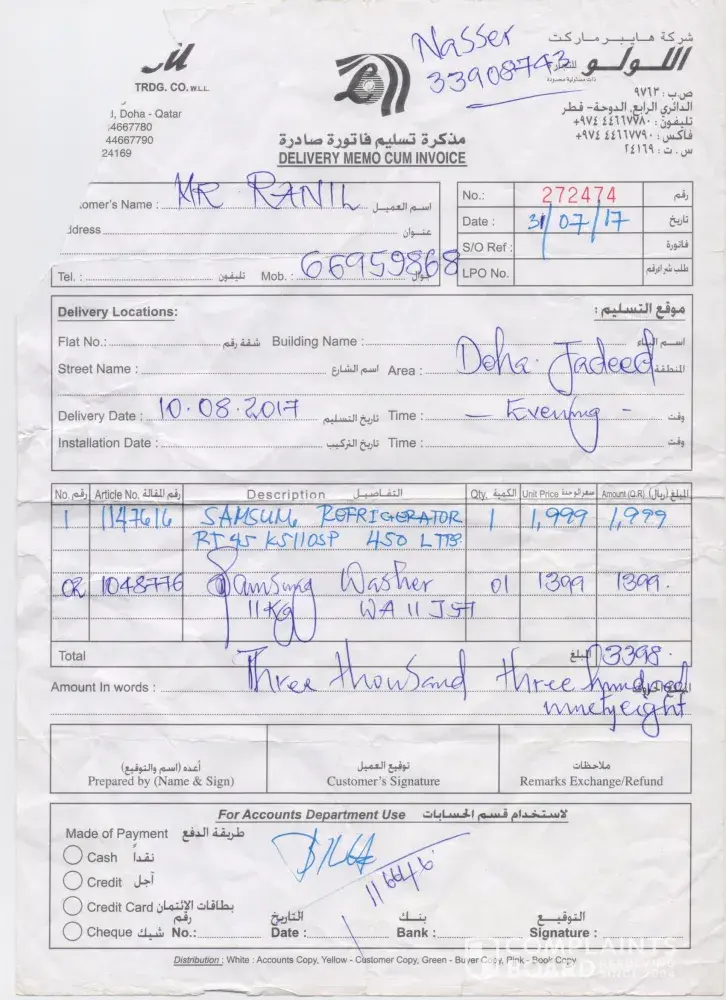 Nasser
33908743
شركة هايبر ماركت
اللولو للتجارة
ذات مسئولية محدودة
TRDG. CO. W.L.L.
ص.ب : ٩٧٦٣
الدائري الرابع, الدوحة- قطر
, Doha - Qatar
تليفون : ٤٤٦٦٧٧٨٠ ٩٧٤+
4667780
فاكس : ٤٤٦٦٧٧٩٠ ٩٧٤+
44667790
س . ت : ٢٤١٦٩
24169
مذكرة تسليم فاتورة صادرة
DELIVERY MEMO CUM INVOICE
omer's Name : MR RANIL اسم العميل
ddress عنوان
Tel. : تليفون Mob. : 66959868 جوال
No.: 272474 رقم
Date : 31/07/17 تاريخ
S/O Ref : فاتورة
LPO No. طلب شراء رقم
Delivery Locations: موقع التسليم :
Flat No.: شقة رقم Building Name : اسم البناء
Street Name : اسم الشارع Area : Doha Jadeed المنطقة
Delivery Date : 10.08.2017 تاريخ التسليم Time : - Evening - وقت
Installation Date : تاريخ التركيب Time : وقت
No. رقم Article No. رقم المقالة Description التفاصيل Qty. الكمية Unit Price سعر الوحدة Amount (Q.R) المبلغ (ريال)
1 1147616 SAMSUNG REFRIGERATOR 1 1,999 1,999
RT 45 K5110SP 450 LTRS
02 1048776 Samsung Washer 01 1399 1399.
11Kg WA 11 J57
Total المبلغ 3398.
Amount In words : Three thousand three hundred
ninety eight
أعده (اسم والتوقيع) توقيع العميل ملاحظات
Prepared by (Name & Sign) Customer's Signature Remarks Exchange/Refund
For Accounts Department Use لاستخدام قسم الحسابات
Made of Payment طريقة الدفع
Cash نقداً
Credit آجل
116646
Credit Card بطاقات الإئتمان
Cheque شيك No.: رقم Date : التاريخ Bank : بنك Signature : التوقيع
Distribution : White : Accounts Copy, Yellow - Customer Copy, Green - Buyer Copy, Pink - Book Copy
COMPLAINTS
BOARD